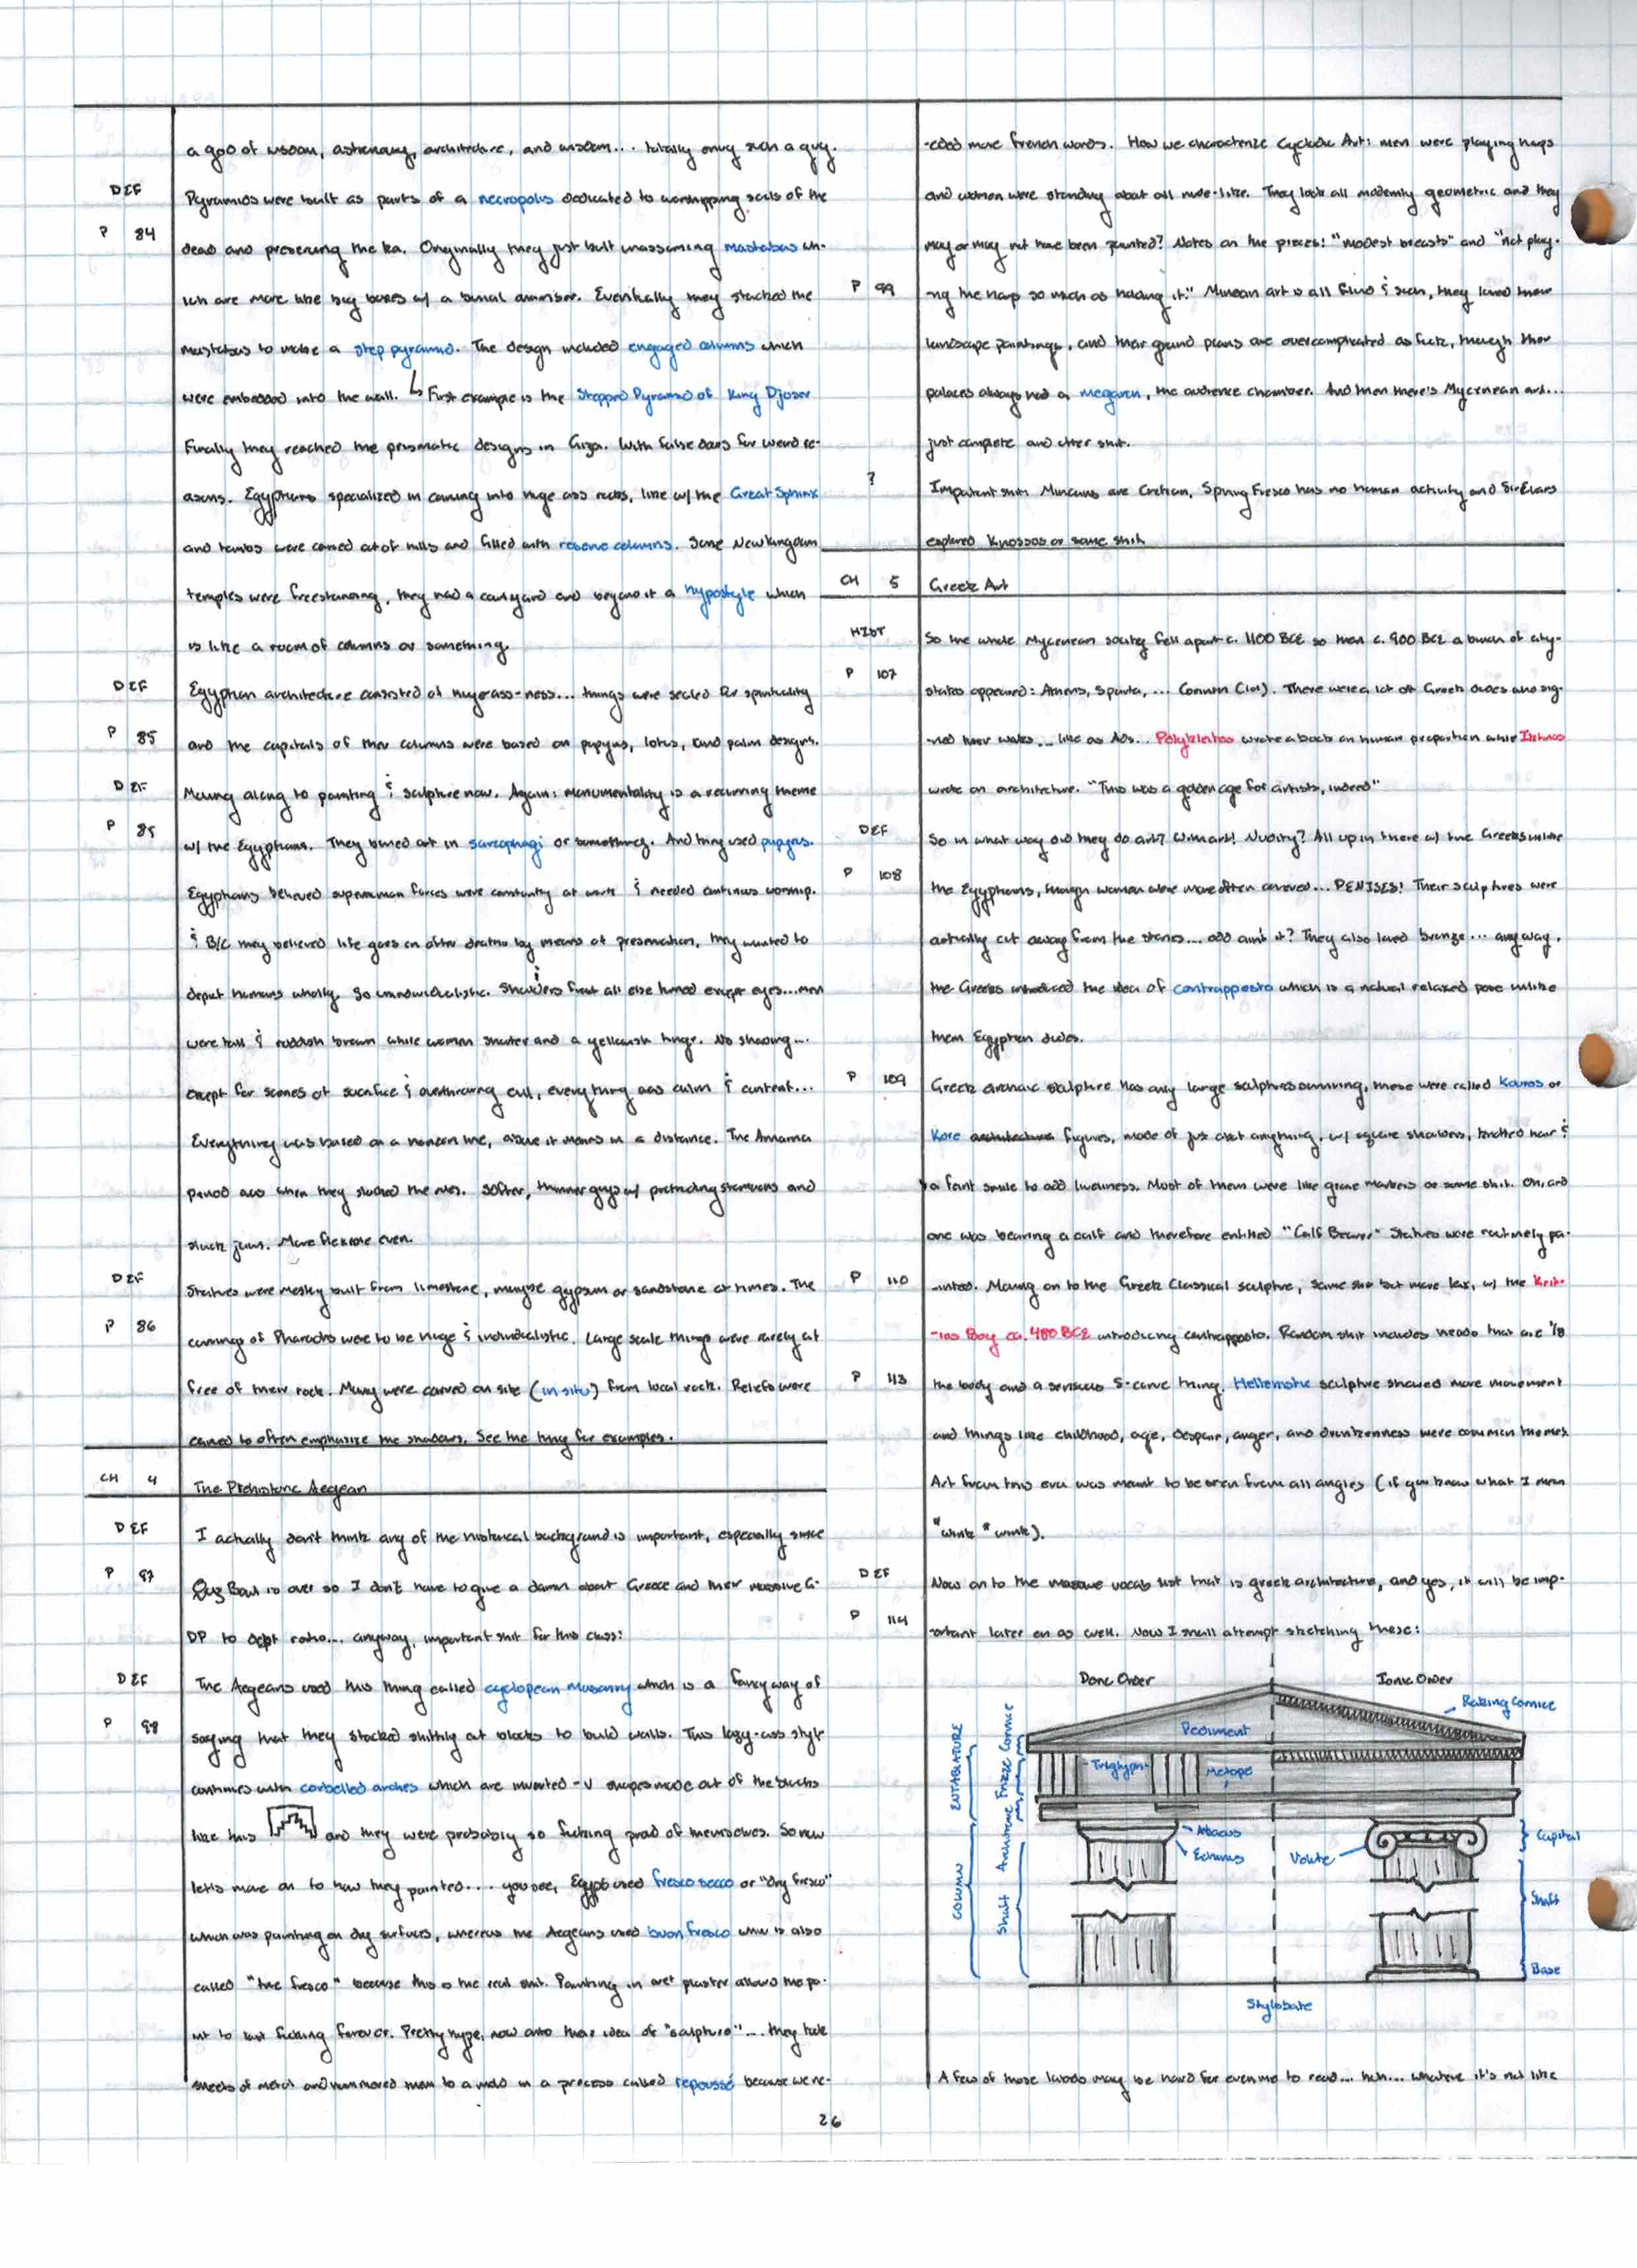 a god of wisdom, astronomy, architecture, and wisdom... totally envy such a guy.
DEF
Pyramids were built as parts of a necropolis dedicated to worshipping souls of the
P 84
dead and preserving the ka. Originally they just built unassuming mastabas wh-
ich are more like big boxes w/ a burial chamber. Eventually they stacked the
mastabas to make a step pyramid. The design included engaged columns which
were embedded into the wall. ↳ First example is the Stepped Pyramid of King Djoser
Finally they reached the prismatic designs in Giza. With false doors for weird re-
asons. Egyptians specialized in carving into huge ass rocks, like w/ the Great Sphinx
and tombs were carved out of hills and filled with reserve columns. Some New Kingdom
temples were freestanding, they had a courtyard and beyond it a hypostyle which
is like a room of columns or something.
DEF
Egyptian architecture consisted of huge-ass-ness... things were scaled for spirituality
P 85
and the capitals of their columns were based on papyrus, lotus, and palm designs.
DEF
Moving along to painting & sculpture now. Again: monumentality is a recurring theme
P 85
w/ the Egyptians. They buried art in sarcophagi or something. And they used papyrus.
Egyptians believed superhuman forces were constantly at work & needed continuous worship.
& B/C they believed life goes on after deaths by means of preservation, they wanted to
depict humans wholly. So unindividualistic. Shoulders front all else turned except eyes...men
were tall & ruddish brown while women shorter and a yellowish tinge. No shading...
except for scenes of sacrifice & overthrowing evil, everything was calm & content...
Everything was based on a horizon line, above it means in a distance. The Amarna
period was when they slacked the rules. Softer, thinner guys w/ protruding stomachs and
slack jaws. More flexible even.
DEF
Statues were mostly built from limestone, maybe gypsum or sandstone at times. The
P 86
carvings of Pharaohs were to be huge & individualistic. Large scale things were rarely cut
free of their rock. Many were carved on site (in situ) from local rock. Reliefs were
carved to often emphasize the shadows. See the thing for examples.
CH 4
The Prehistoric Aegean
DEF
I actually don't think any of the historical background is important, especially since
P 97
Quiz Bowl is over so I don't have to give a damn about Greece and their massive G-
DP to debt ratio... anyway, important shit for this class:
DEF
The Aegeans used this thing called cyclopean masonry which is a fancy way of
P 98
saying that they stacked shittily cut blocks to build walls. This lazy-ass style
continues with corbelled arches which are inverted-V shapes made out of the blocks
like this and they were probably so fucking proud of themselves. So now
let's move on to how they painted.... you see, Egypt used fresco secco or "dry fresco"
which was painting on dry surfaces, whereas the Aegeans used buon fresco which is also
called "true fresco" because this is the real shit. Painting in wet plaster allows the pa-
int to last fucking forever. Pretty hype, now onto their idea of "sculpture".... they took
sheets of metal and hammered them to a mold in a process called repoussé because we ne-
-eded more french words. How we characterize Cycladic Art: men were playing harps
and women were standing about all nude-like. They look all modernly geometric and they
may or may not have been painted? Notes on the pieces: "modest breasts" and "not play-
P 99
-ng the harp so much as holding it." Minoan art is all fluid & such, they loved their
landscape paintings, and their ground plans are overcomplicated as fuck, though their
palaces always had a megaron, the audience chamber. And then there's Mycenean art...
just complete and utter shit.
?
Important shit: Minoans are Cretian, Spring Fresco has no human activity and Sir Evans
explored Knossos or some shit.
CH 5
Greek Art
HIST
So the whole Mycenean society fell apart c. 1100 BCE so then c. 900 BCE a bunch of city-
P 107
states appeared: Athens, Sparta, ... Corinth (lol). There were a lot of Greek dudes who sig-
-ned their works... like as ADs... Polykleitos wrote a book on human proportion while Iktinos
wrote on architecture. "This was a golden age for artists, indeed"
DEF
So in what way did they do art? Nudity? All up in there w/ the Greeks unlike
P 108
the Egyptians, though women were more often covered... PENISES! Their sculptures were
actually cut away from the stones.... odd ain't it? They also loved bronze... anyway,
the Greeks introduced the idea of contrapposto which is a natural relaxed pose unlike
them Egyptian dudes.
P 109
Greek archaic sculpture has any large sculptures surviving, these were called Kouros or
Kore architecture figures, made of just about anything, w/ square shoulders, knotted hair &
a faint smile to add liveliness. Most of them were like grave markers or some shit. Oh, and
one was bearing a calf and therefore entitled "Calf Bearer" Statues were routinely pa-
P 110
-inted. Moving on to the Greek Classical sculpture, same shit but more lax, w/ the Krit-
-ios Boy ca. 480 BCE introducing contrapposto. Random shit includes heads that are 1/8
P 113
the body and a sensuous S-curve thing. Hellenistic sculpture showed more movement
and things like childhood, age, despair, anger, and drunkenness were common themes.
Art from this era was meant to be seen from all angles (if you know what I mean
*wink *wink).
DEF
Now on to the massive vocab list that is greek architecture, and yes, it will be imp-
P 114
-ortant later on as well. Now I shall attempt sketching these:
Doric Order
Ionic Order
Raking Cornice
Pediment
ENTABLATURE
Architrave Frieze Cornice
-Triglyph-
Metope
Abacus
Echinus
Volute
Capital
COLUMN
Shaft
Shaft
Base
Stylobate
A few of those labels may be hard for even me to read... huh... whatever it's not like
26